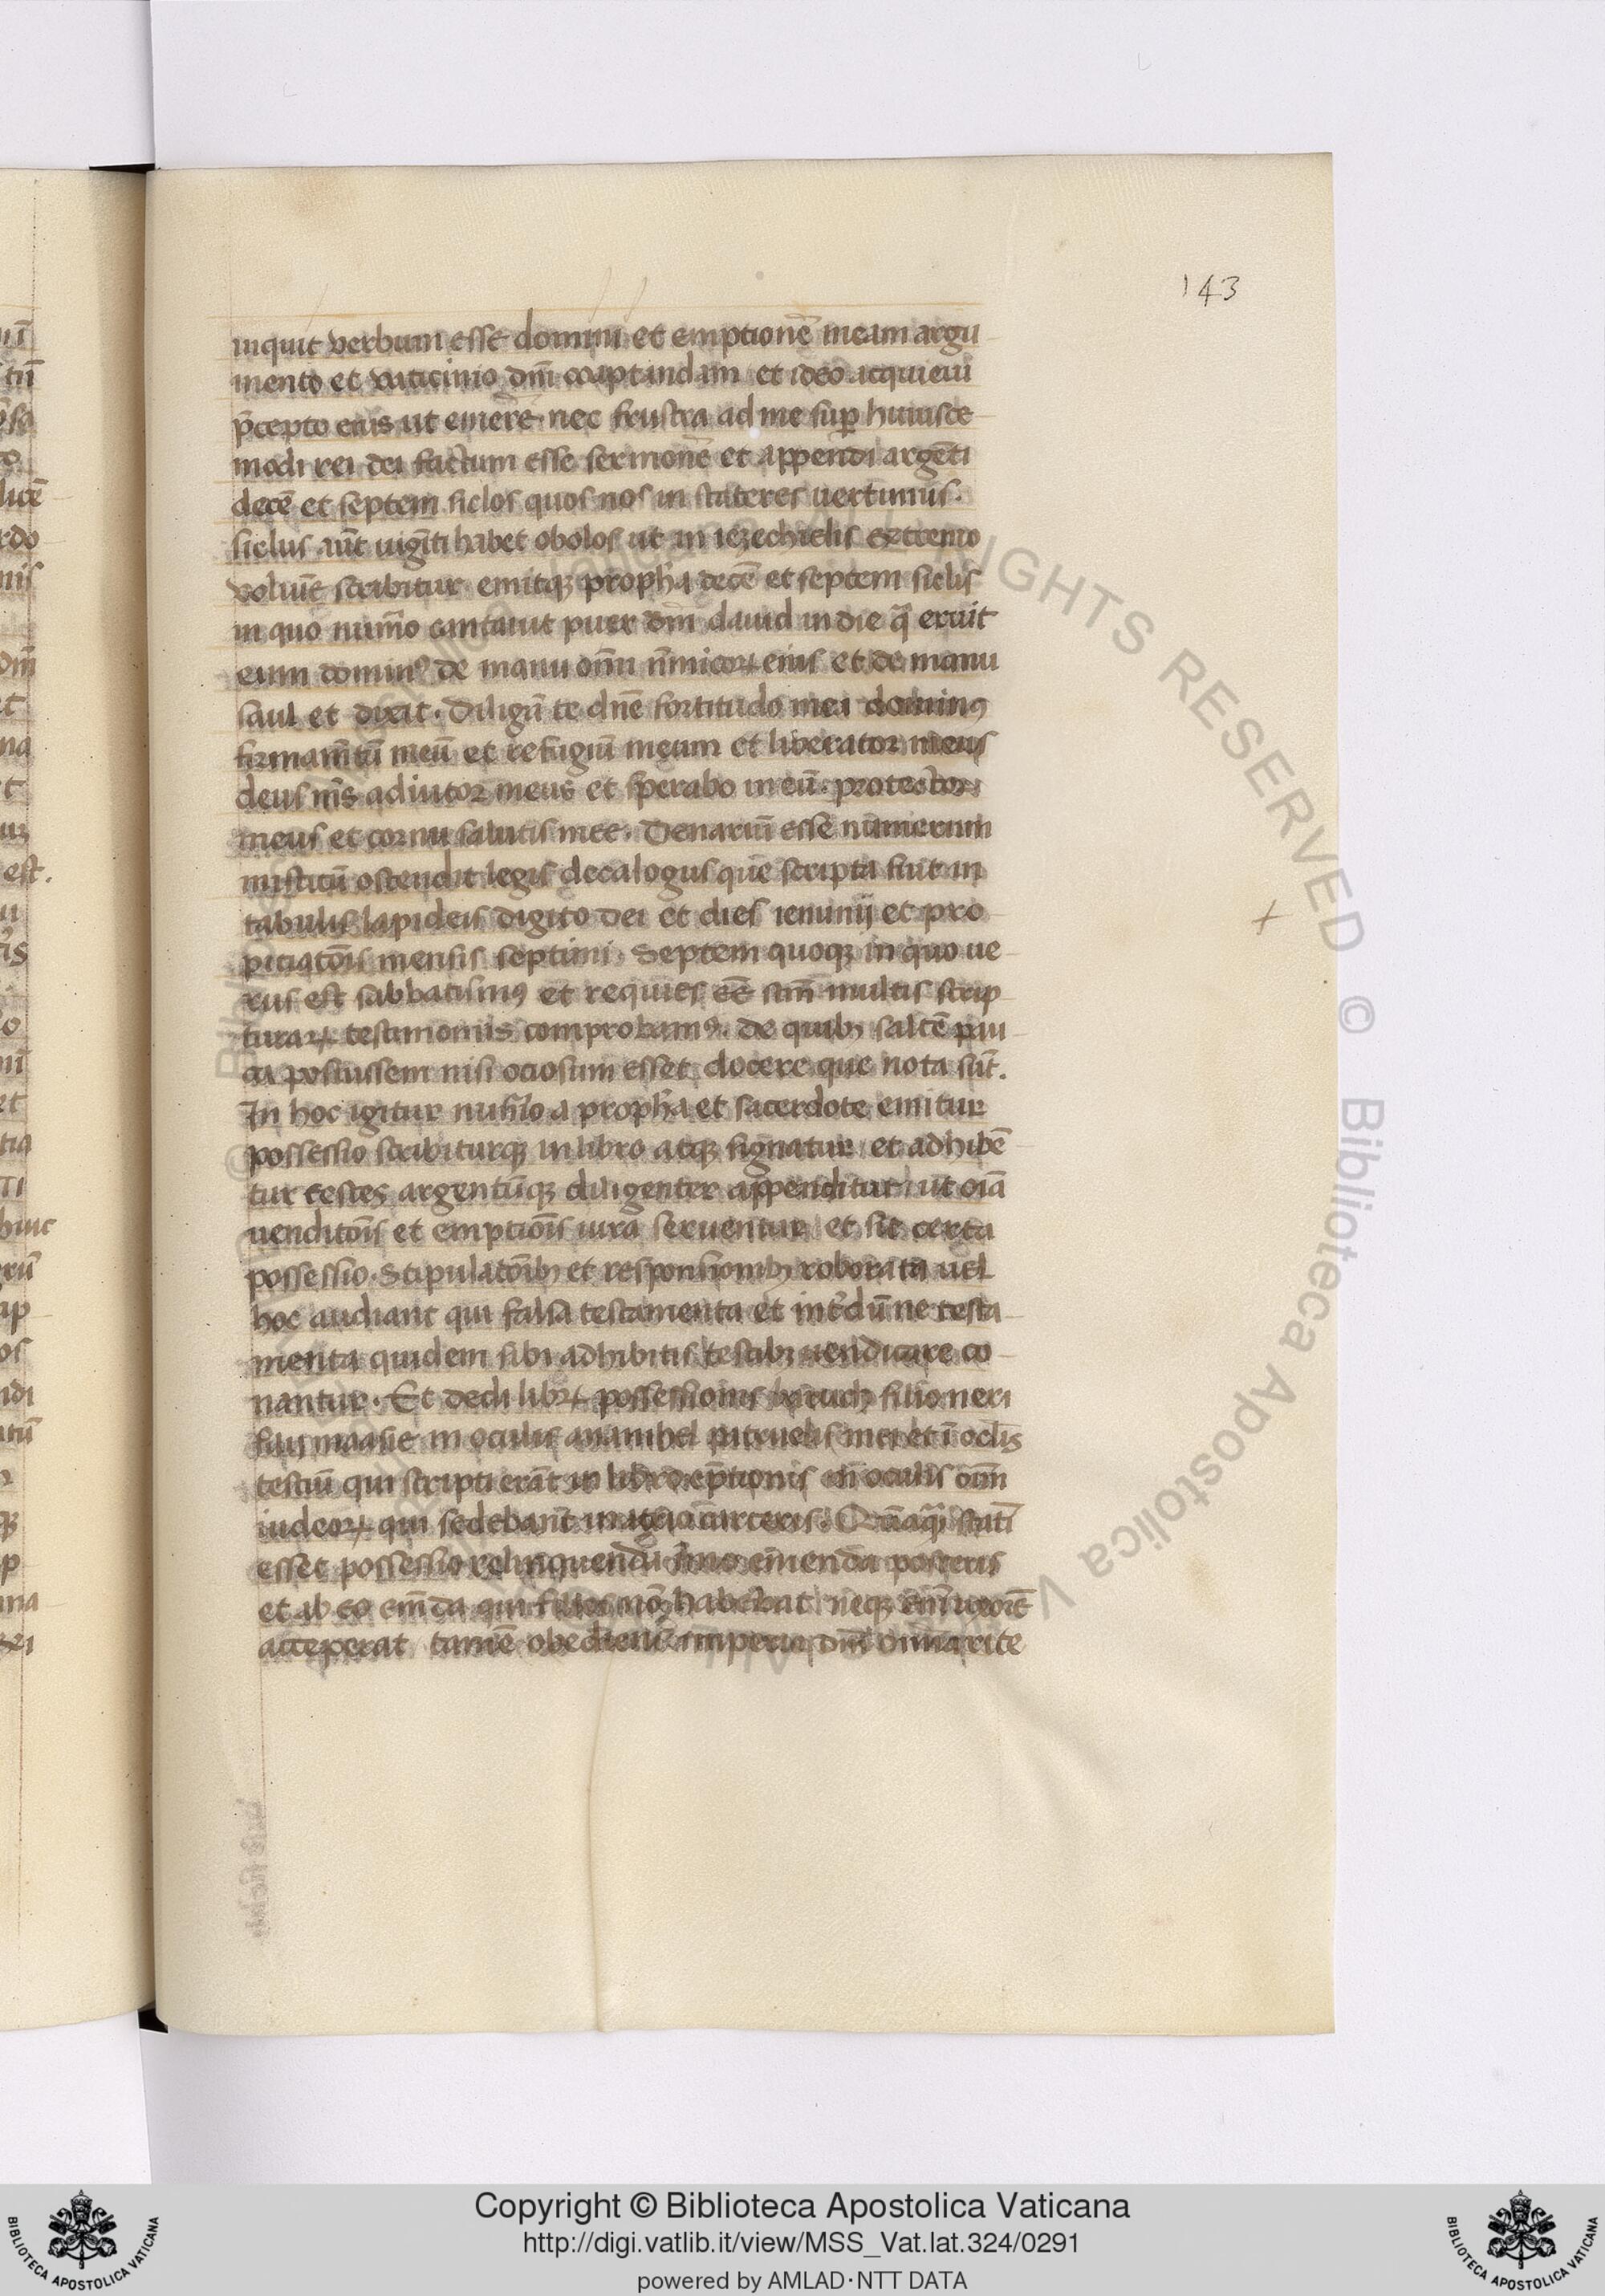 143
inquit verbum esse domini et emptionē meam argu
mento et vaticinio dm̄i coaptandam et ideo acquieui
p̄cepto eius ut emerē nec frustra ad me sup̱ huiusce
modi rei dei factum esse sermonē et appendi argēti
decē et septem siclos quos nos in stateres uertimus.
siclus aūt uigīti habet obolos ut in iezechielis extremo
volumē scribitur emitqꝫ prophā decē et septem siclis
in quo num̄o cantauit puer dm̄i dauid in die q̄ eruit
eum dominꝰ de manu om̄u īnimicoꝝ eius et de manu
saul et dixit. Diligā te dnē fortitudo mei dominꝰ
firmam̄tū meū et refugiū meum et liberator meus
deus m̄s adiutor meus et sperabo in eū. protector
meus et cornu salutis mee. Denariū esse numerum
misticū ostendit legis decalogus que scripta fuit in
tabulis lapideis digito dei et dies ieiunij et pro
piciatōis mensis septimi. Septem quoqꝫ in quo ue
rus est sabbatismꝰ et requies eē scm̄ multis scrip
turaꝝ testimoniis comprobamꝰ. de quibꝫ saltē pau
ca posuissem nisi ociosum esset docere que nota sūt.
In hoc igitur num̄o a prophā et sacerdote emitur
possessio scribiturqꝫ in libro atqꝫ signatur et adhibē
tur testes argentūqꝫ diligenter appenditur ut oīa
uenditōis et emptiōis iura seruentur et sit certa
possessio. Stipulatōibꝫ et responsionibꝫ roborata uel
hoc audiant qui falsa testamenta et int̄dū ne testa
menta quidem sibi adhibitis testibꝫ uendicare co
nantur. Et dedi libꝝ possessionis baruch filio neri
filii maasie in oculis anamehel patruelis mei et ī oclīs
testiū qui scripti erāt in libro ēptionis in oculis om̄
iudeoꝝ qui sedebant in atrio carceris. Quāq̄ statī
esset possessio relinquenda emenda posteris
et ab eo em̄da qui filios nō habebat neqꝫ enī uxorē
acceperat tamē obediens imperia dm̄i omnia rite
Copyright © Biblioteca Apostolica Vaticana
http://digi.vatlib.it/view/MSS_Vat.lat.324/0291
powered by AMLAD·NTT DATA